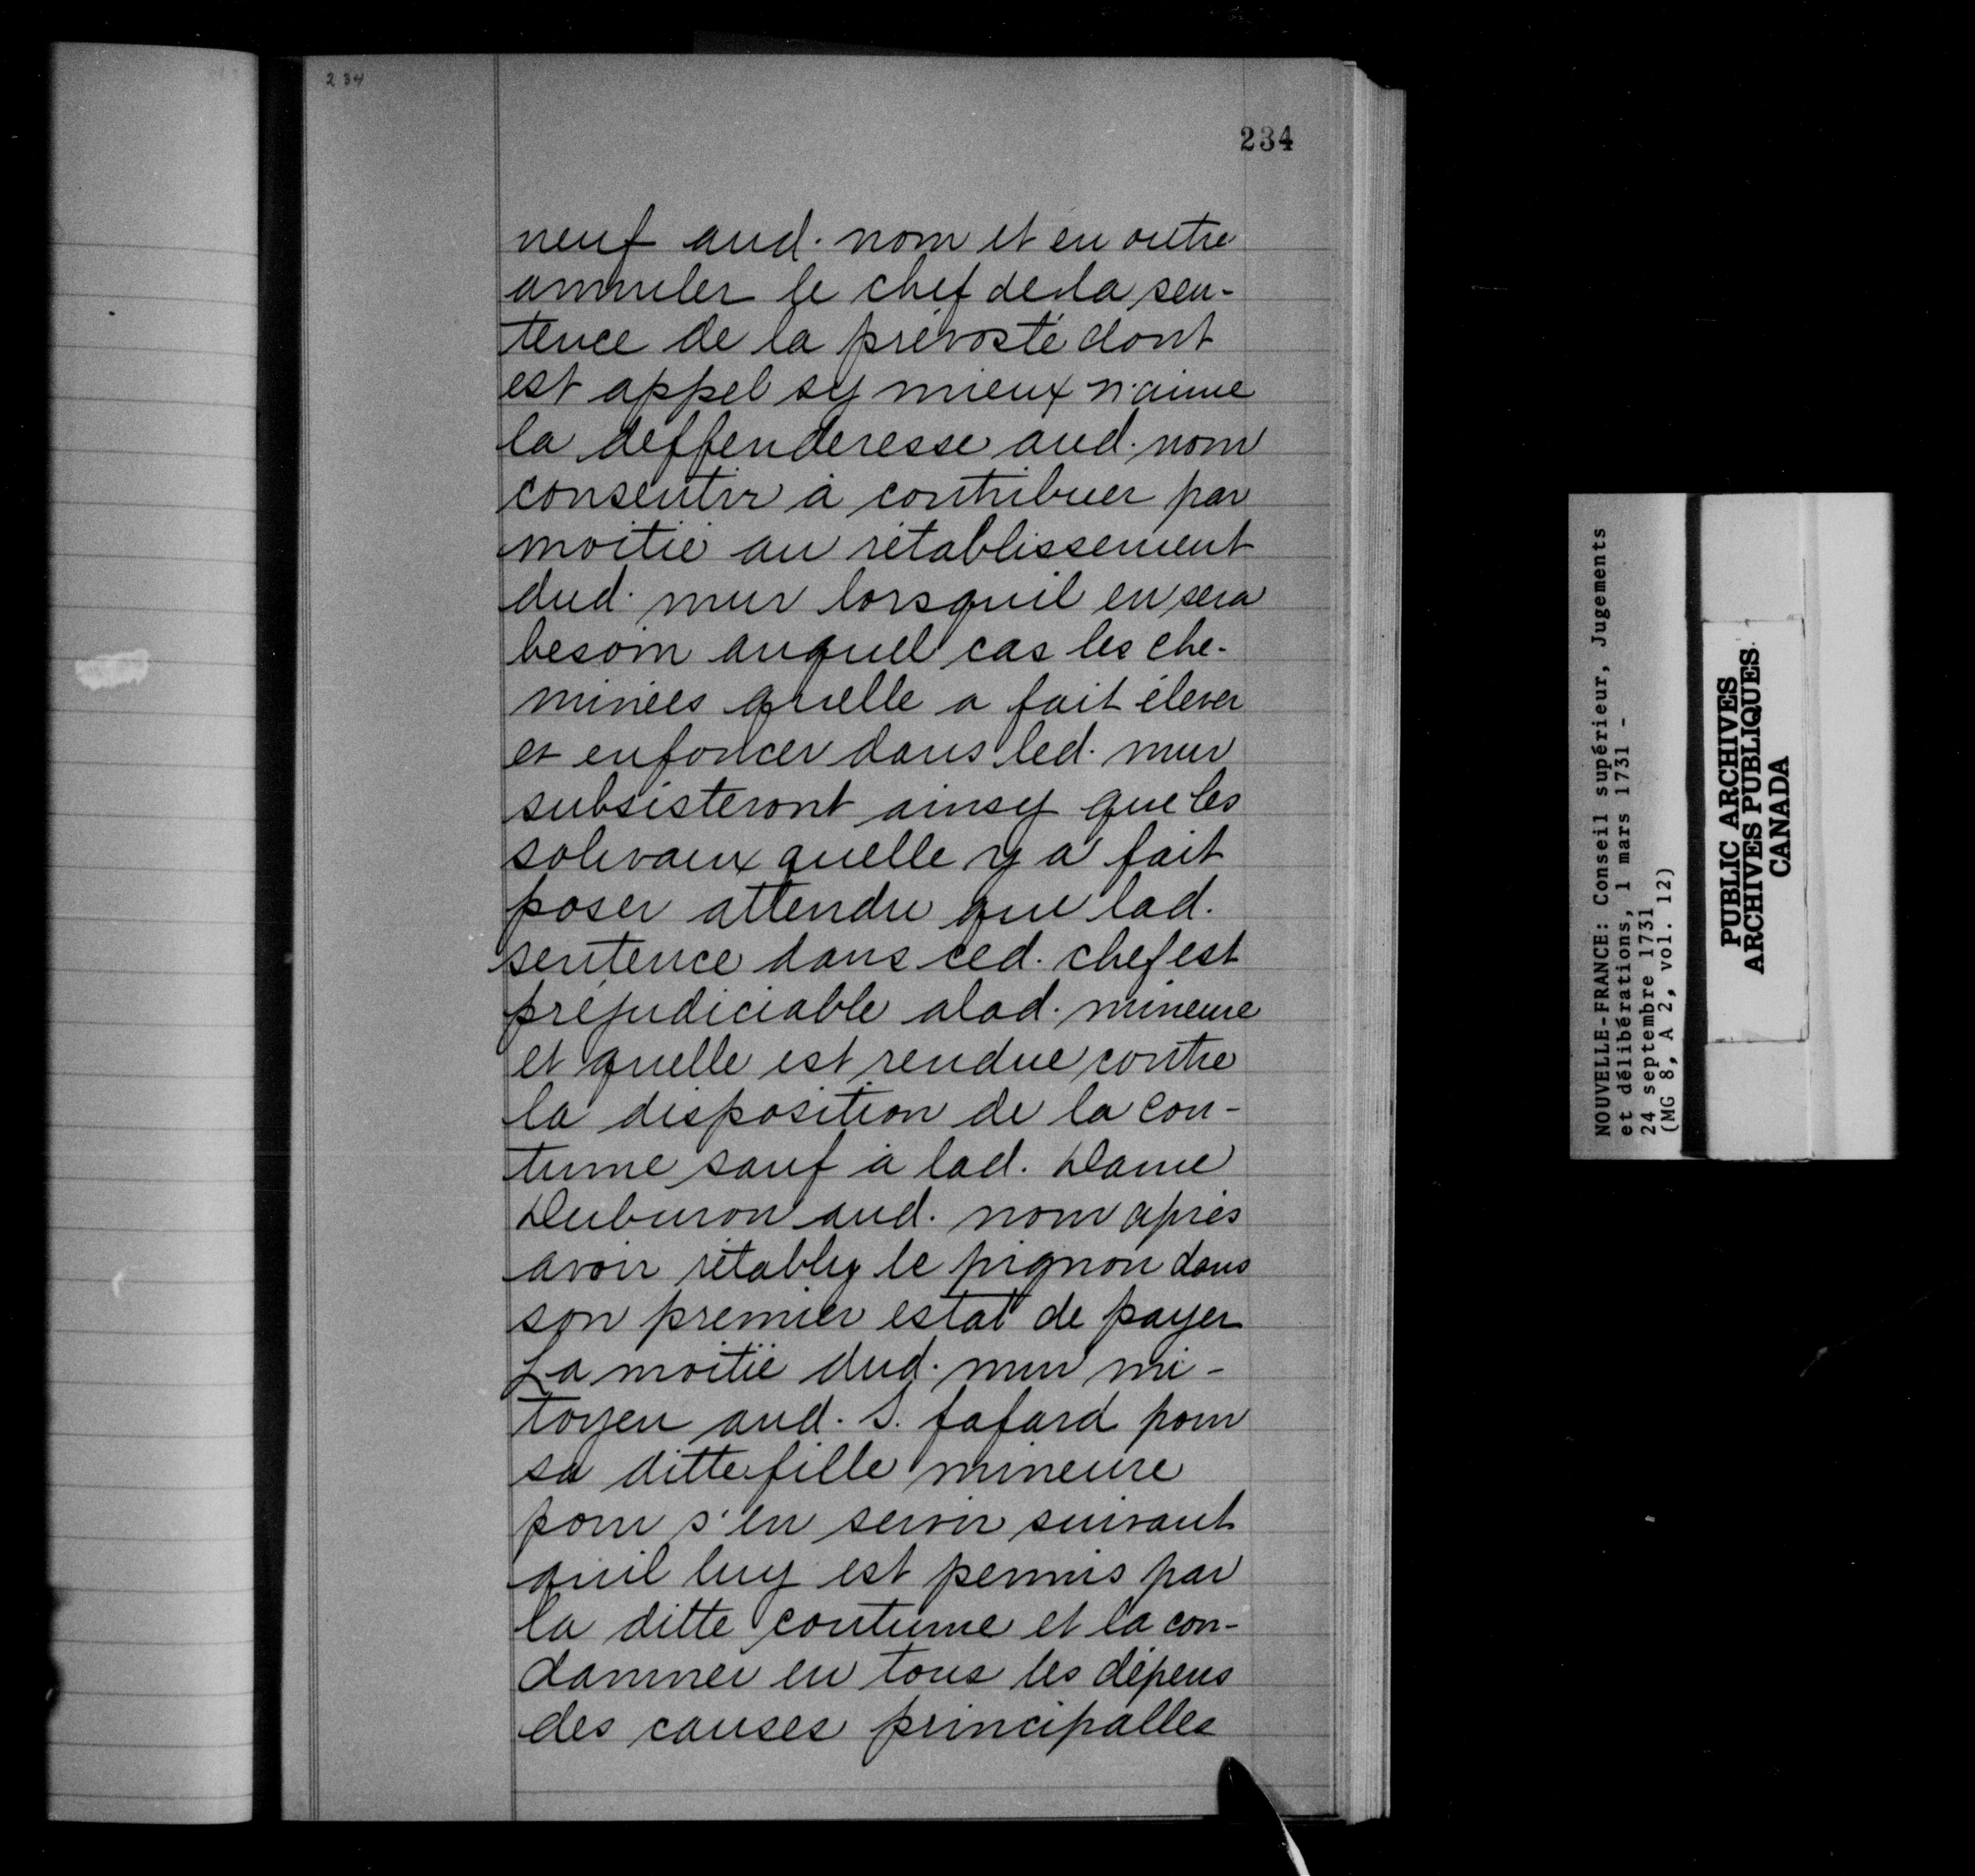 234
234
neuf aud. nom et en outre
annuler le chef de la sen-
tence de la prévosté dont
est appel sy mieux n'aime
la deffenderesse aud. nom
consentir à contribuer par
moitié au rétablissement
dud. mur lorsquil en sera
besoin auquel cas les che-
minées quelle a fait élever
et enfoncer dans led. mur
subsisteront ainsy que les
soliveaux quelle y a fait
poser attendu que lad.
sentence dans ced. chef est
préjudiciable alad. mineure
et quelle est rendue contre
la disposition de la cou-
tume sauf à lad. Dame
Duburon aud. nom après
avoir rétably le pignon dans
son premier estat de payer
La moitié dud. mur mi-
toyen aud. S. fafard pour
sa ditte fille mineure
pour s'en servir suivant
quil luy est permis par
la ditte coutume et la con-
damner en tous les dépens
des causes principalles
NOUVELLE-FRANCE: Conseil supérieur, Jugements
et délibérations, 1 mars 1731 -
24 septembre 1731
(MG 8, A 2, vol. 12)
PUBLIC ARCHIVES
ARCHIVES PUBLIQUES
CANADA